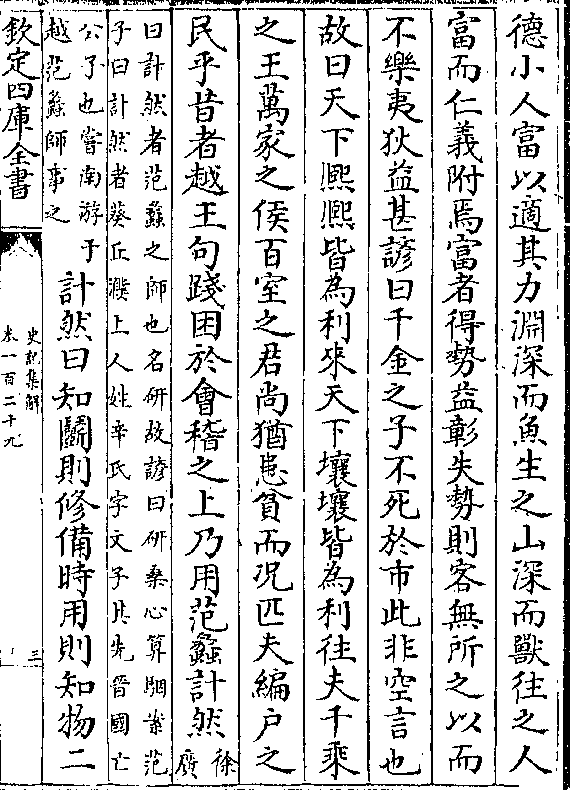 德小人富以適其力淵深而魚生之山深而獸往之人
富而仁義附焉富者得勢益彰失勢則客無所之以而
不樂夷狄益甚諺曰千金之子不死於市此非空言也
故曰天下熙熙皆為利來天下壤壤皆為利往夫千乘
之王萬家之侯百室之君尚猶患貧而況匹夫編戶之
民乎昔者越王句踐困於會稽之上乃用范蠡計然
徐
廣
曰計然者范蠡之師也名研故諺曰研桑心算駰案范
子曰計然者葵丘濮上人姓辛氏字文子其先晉國亡
公子也嘗南游于
越范蠡師事之
計然曰知鬭則修備時用則知物二
欽定四庫全書
史記集解
卷一百二十九
三